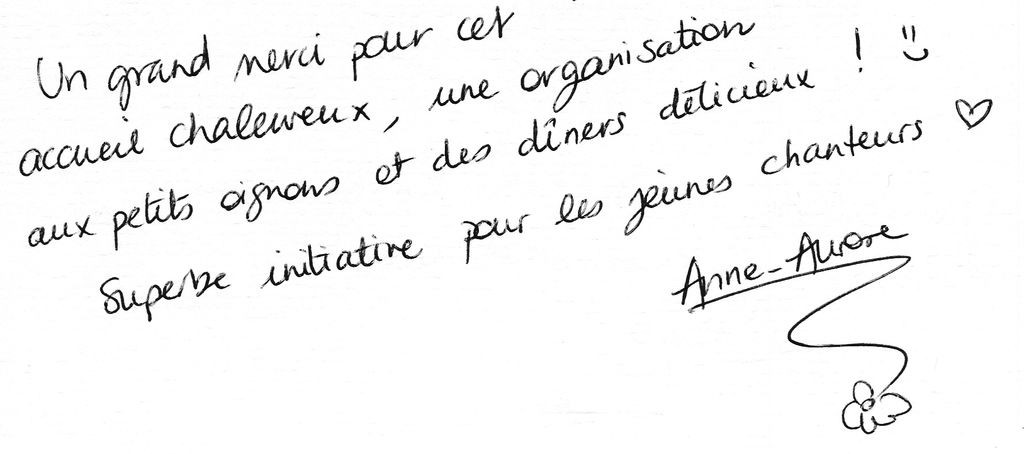 Un grand merci pour cet
accueil chaleureux, une organisation
aux petits oignons et des dîners délicieux ! :)
Superbe initiative pour les jeunes chanteurs ♡
Anne-Aurore